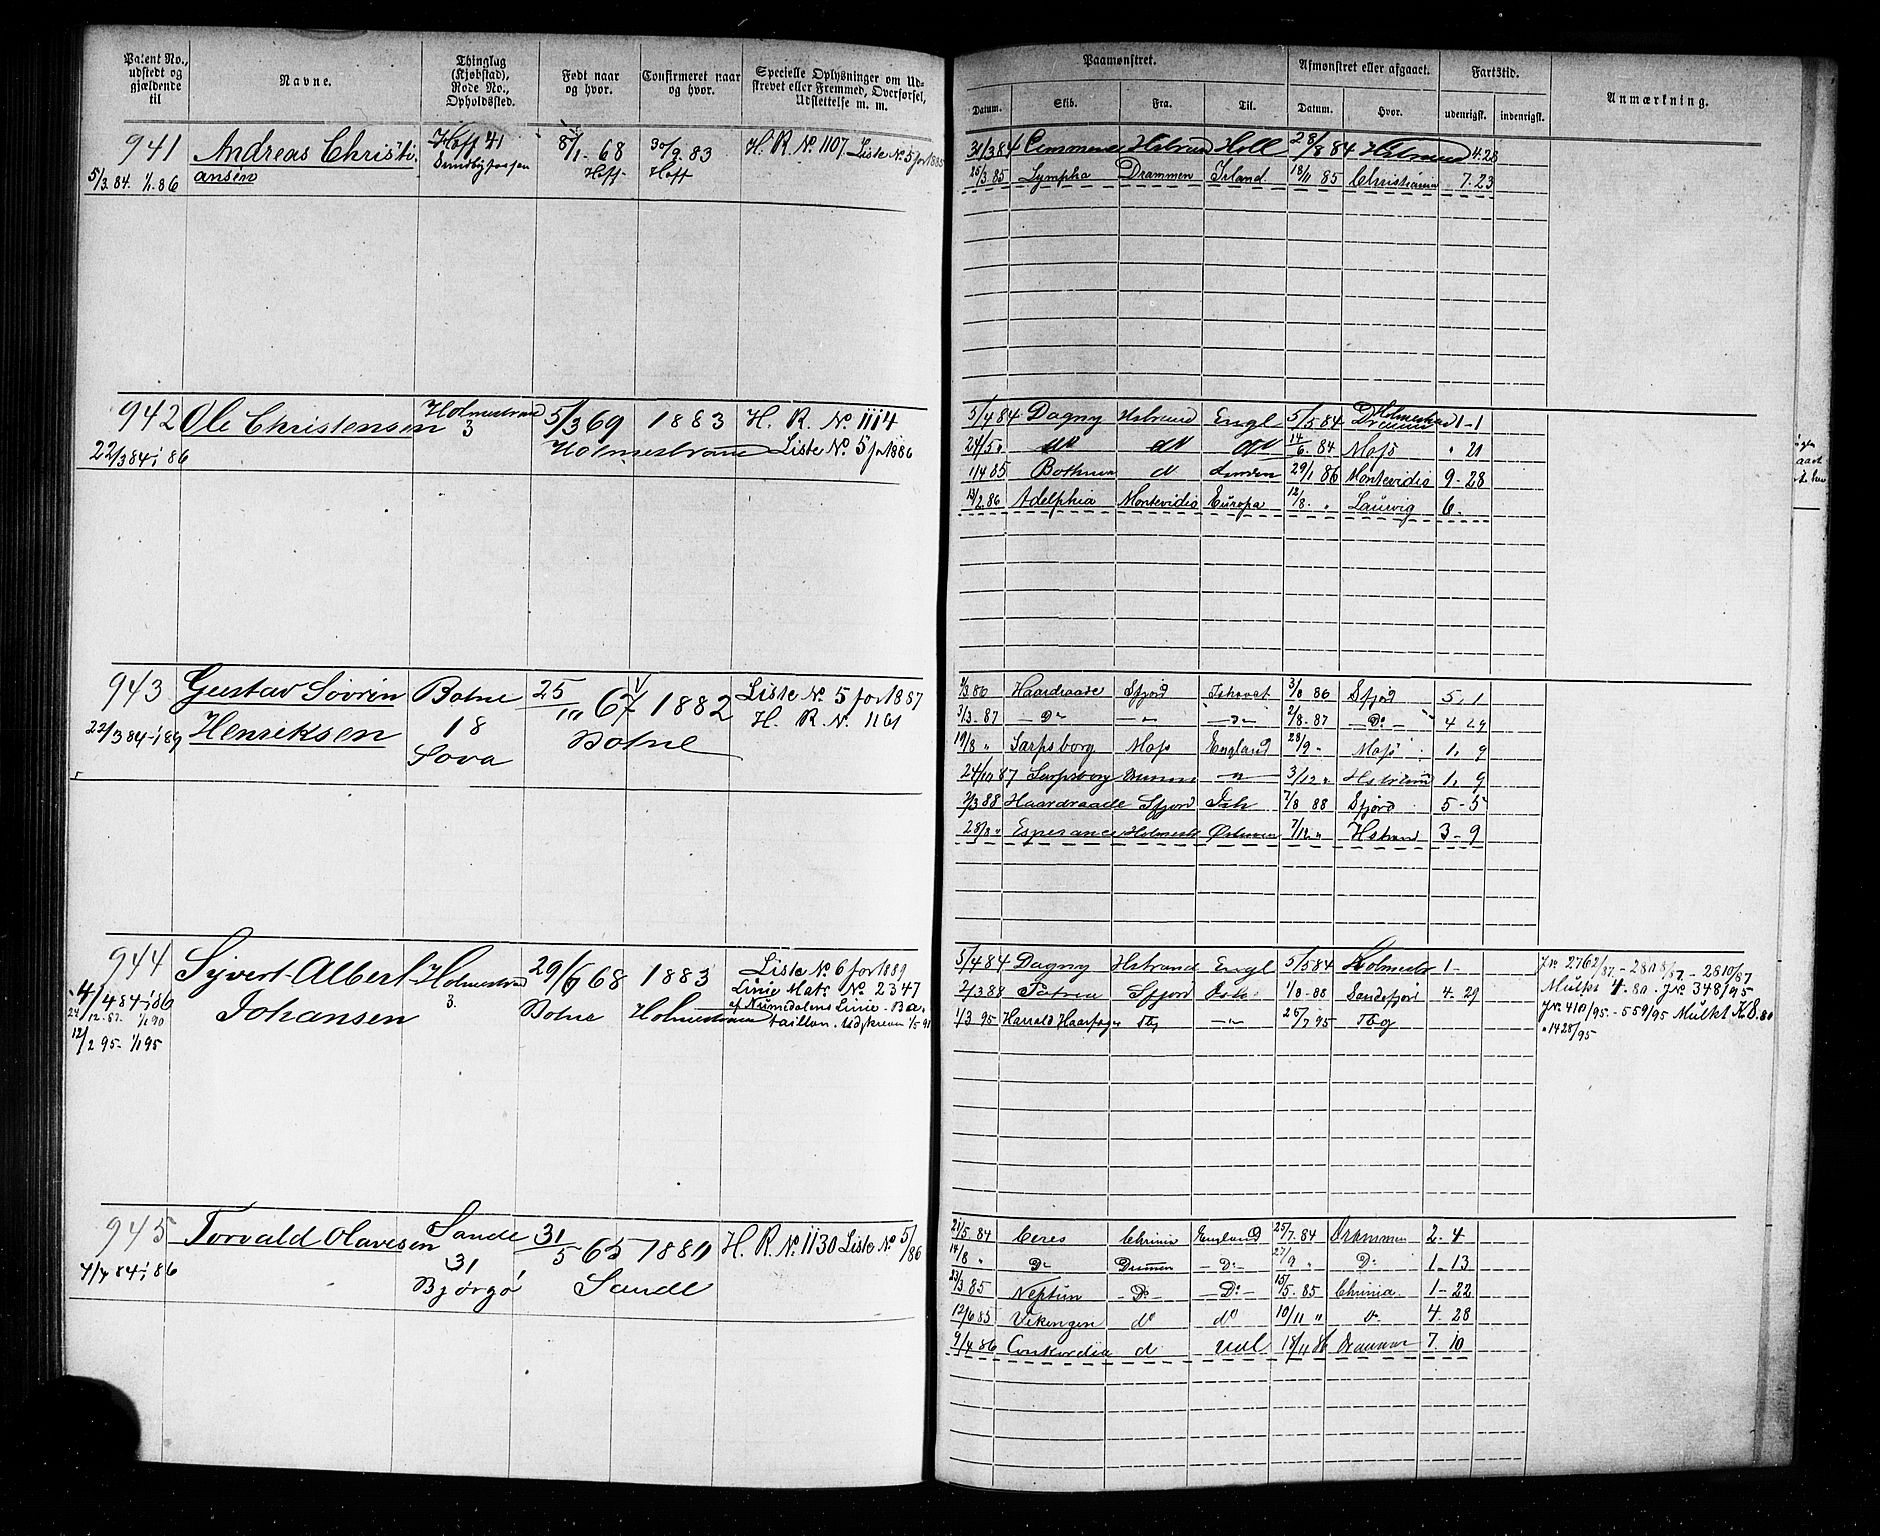 Patent No., udstedt og gjældende til
Navne.
Thinglag (Kjøbstad), Rode No., Opholdssted.
Født naar og hvor.
Confirmeret naar og hvor.
Specielle Oplysninger om Udstrevet eller Fremmed, Overførsel, Udslettelse m. m.
Paamønstret.
Afmønstret eller afgaaet.
Fartstid.
Anmærkning.
Datum. Skib. Fra. Til. Datum. Hvor. udenrigsk. indenrigsk.
941 Andreas Christi Hoff 41 8/1 - 68 30/9 83 H. R. No 1107. Liste No 5 for 1885
5/3.84. 1/1.86 ansen Hoff Hoff
31/3 84 Hstrand Holl 23/8 84 Hstrand 4.28
25/3.85 Lympha Drammen Irland 18/11 85 Christiania 7.23
942 Ole Christensen Holmestrand 3 5/3 69 1883 H. R. No 1114
22/3 84 - 1/1 86 Holmestrand Liste No 5 for 1886
5/4 84 Dagny Hstrand Engl 5/5 84 Holmestrand 1-1
24/5 do do do 14/6. 84 Moss " 21
1/4 85 29/1 86 Montevidio 9-28
13/2.86 Adelphia Montevidio Europa 12/8. " Laurvig 6.
943 Gustav Sövrin Botne 25/11 67 1882 Liste No 5 for 1887
22/3 84 - 1/1 89 Henriksen 18 Botne H. R. No. 1161
Sova
2/3 86 Haardraade Sfjord Ishavet 3/8 86 Sfjord 5. 1
3/3-87 - Do - - " - - Do - 2/8-87 - Do - 4 29
19/8 " Sarpsborg Moss England 28/9 " Moss 1. 9
24/10 87 Sarpsborg - " - 3/12 " Hstrand 1. 9
2/3 88 Haardraade Sfjord Ish 7/8 88 Sfjord 5-5
28/8 " Esperance Holmestr 7/12 " Hstrand 3-9
944 Syvert Albert Holmestrand 29/6 68 1883 Liste No 6 for 1889
4/4 84 1/1 86 Johansen 3. Botne Holmestrand Linie Mats No 2347
24/12.87. 1/1 90 af Numedalens Linie-Ba-
12/2 95 - 1/1 95 taillon. Udskreven 1/5 91
5/4 84 Dagny Hstrand Engl 5/5 84 Holmestr 1- Jr. 2762/87. - 2808/87 - 2810/87
2/3 88 Patria Sfjord Ish 1/8-88 Sandefjord 4. 29 Mulkt 4.80 - J No 348/95
1/3 95 Harrald Haarfager Tbg - " - 25/7 95 Tbg Jr. 410/95. - 559/95 Mulkt K 8.80
" 1428/95
945 Torvald Olavesen Sande 31/5 65 1880 H. R. No 1130 Liste No 5/86
4/4 84 - 1/1 86 31 Sande
Bjørgø
21/5.84 Ceres Chrinia England 25/7.84 Drammen 2. 4
14/8 " Do Drmen - Do - 27/9 " Do 1-13
23/3 85 Neptun - Do - - Do - 15/5.85 Chrinia. 1-22
12/6 85 Vikingen do do 10/11 " do 4. 28
9/4 86 Conkordia do Udl 18/11 86 Drammen 7. 10